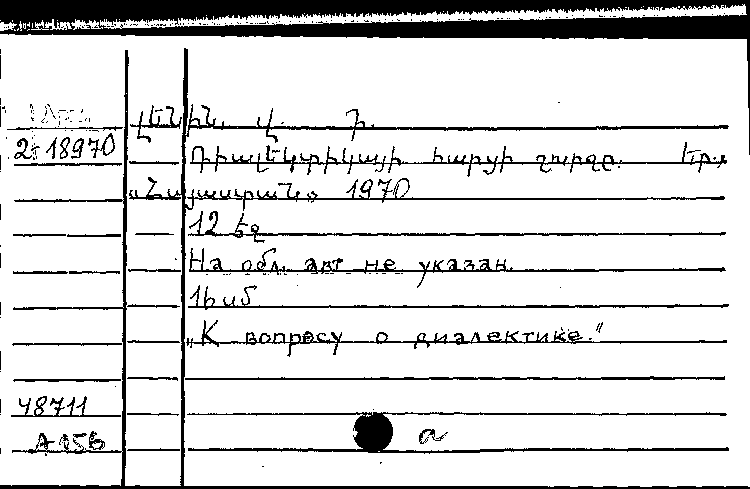 Լենին, Վ. Ի.
2ք 18970 Դիալեկտիկայի հարցի շուրջը. Եր.,
«Հայաստան» 1970
12 էջ
На обл. авт не указан.
1 b иб
„К вопросу о диалектике.“
48711
A 156 a